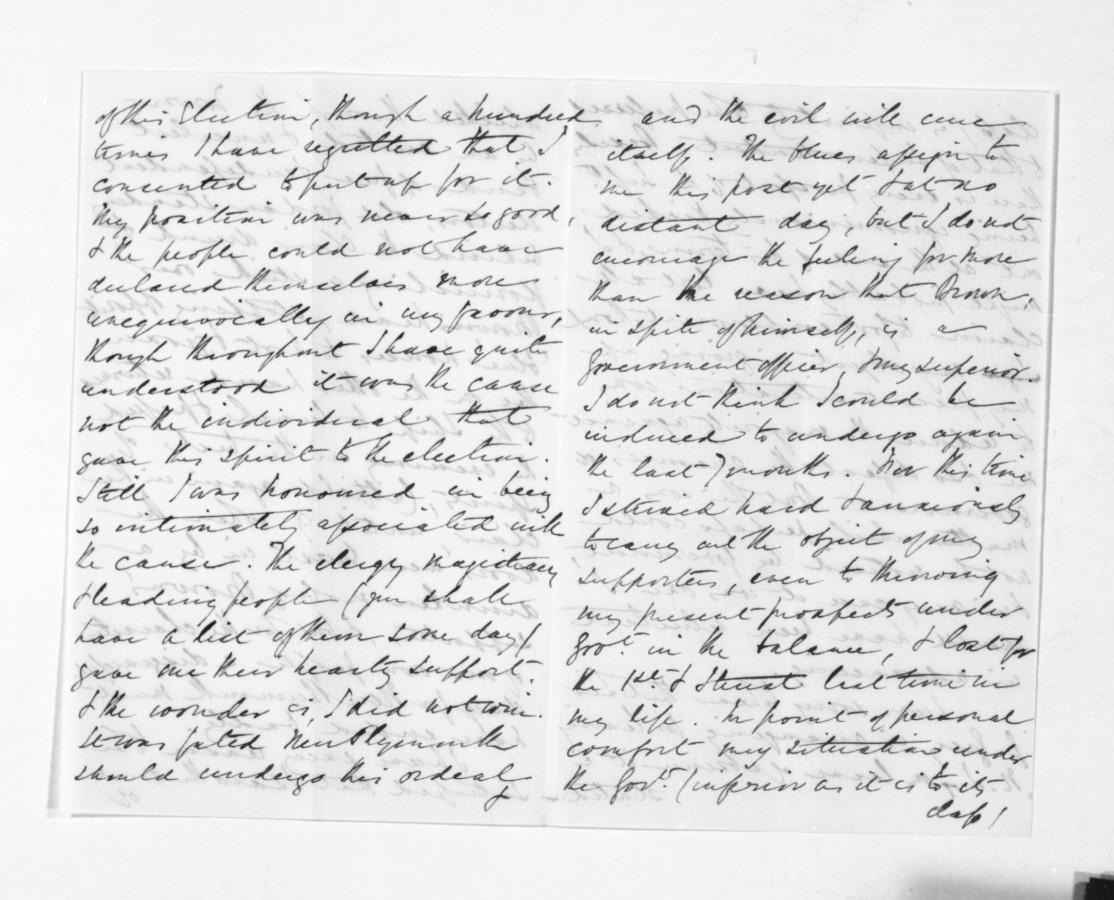 of this Election, though a hundred
times I have regretted that I
consented to put up for it.
My position was never so good,
& the people could not have
declared themselves more
unequivocally in my favour,
though throughout I have quite
understood it was the cause
not the individual that
gave this spirit to the election.
Still I was honoured in being
so intimately associated with
the cause. The clergy magistracy
& leading people (you shall
have a list of them some day)
gave me their hearty support.
& the wonder is, I did not win.
It was fated New Plymouth
should undergo this ordeal
&
and the evil will cure
itself. The blues assign to
me this post yet & at no
distant day, but I do not
encourage the feeling for more
than the reason that Brown,
in spite of himself, is a
Government officer, & my superior.
I do not think I could be
induced to undergo again
the last 7 months. For this time
I strived hard & anxiously
to carry out the object of my
supporters, even to throwing
my present prospects under
Govt. in the balance, & lost for
the 1st. & I trust last time in
my life. In point of personal
comfort my situation under
the Govt. (inferior as it is to its
class)